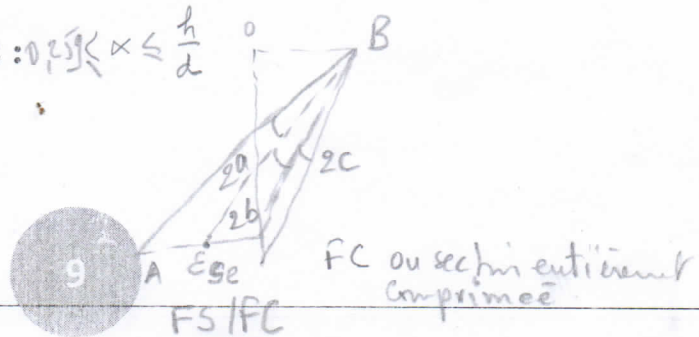 : 0,259 ≤ α ≤ h/d
0 B
2a 2c
2b
9 A εse
FC ou section entièrement
comprimeé
FS/FC